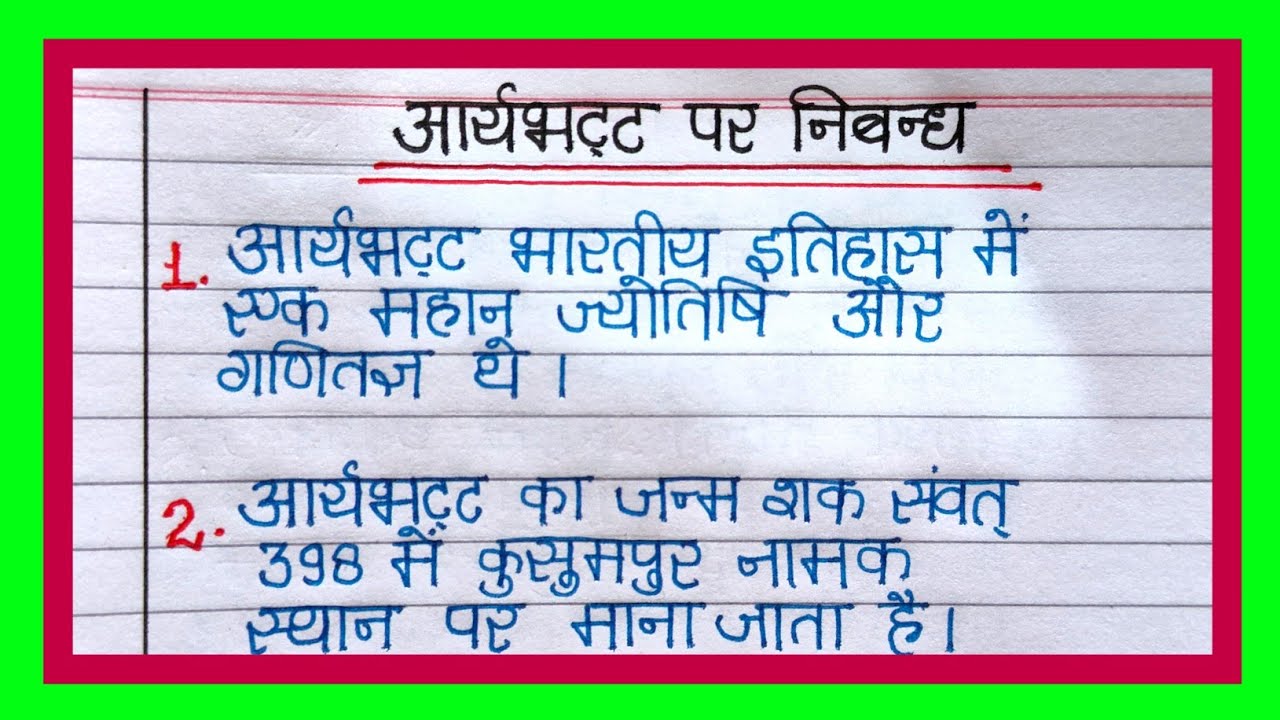 आर्यभट्ट पर निबन्ध
1. आर्यभट्ट भारतीय इतिहास में
एक महान ज्योतिषि और
गणितज्ञ थे।
2. आर्यभट्ट का जन्म शक संवत्
398 में कुसुमपुर नामक
स्थान पर माना जाता है।